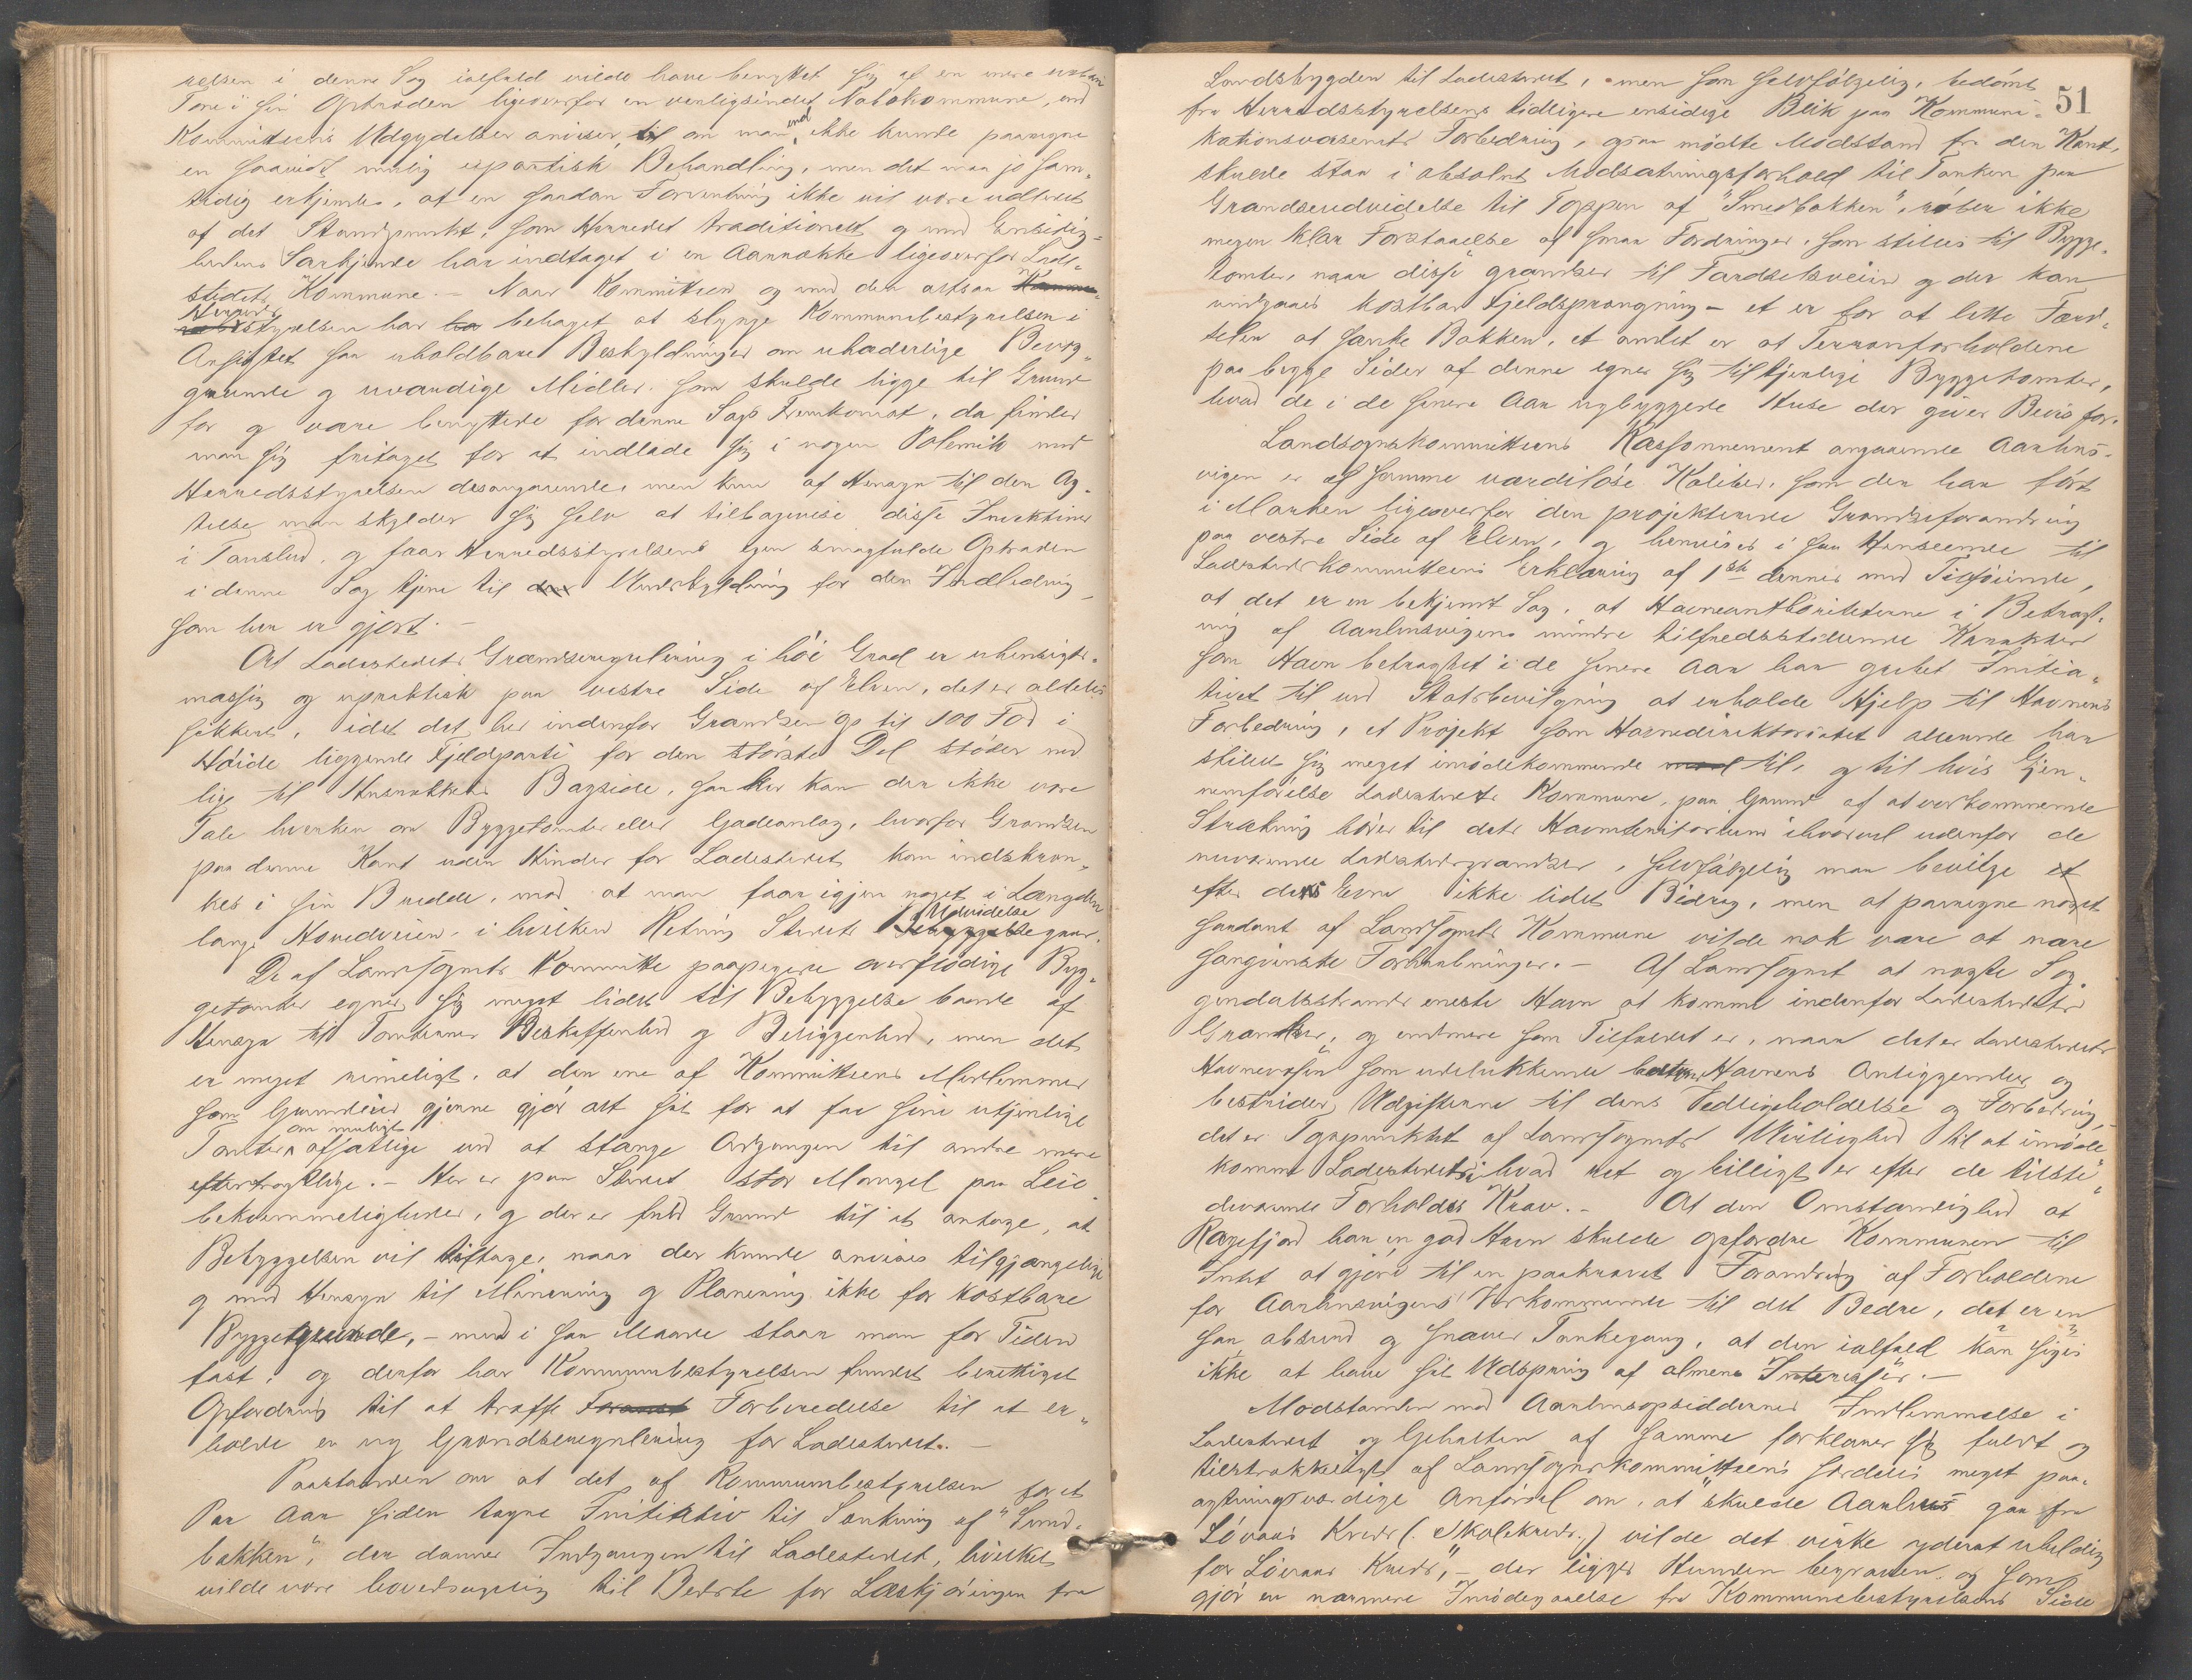 relsen i denne Sag ialfald vilde have benyttet sig af en mere
Tone i sin Optræden ligeoverfor en venligsindet Nabokommune, end
Kommitteens Udgydelser anviser, til om man end ikke kunde paaregne
en saavidt mulig upartisk Behandling, men det maa jo sam-
tidig erkjendes, at en saadan Forventning ikke vil være udledet
af det Standpunkt, som Herredet traditionelt og med Ensidig-
hedens Særkjende har indtaget i en Aarrække ligeoverfor Lade-
stedets Kommune. – Naar Kommitteen og med den altsaa
Herredsstyrelsen har behaget at slynge Kommunebestyrelsen i
Ansigtet saa uholdbare Beskyldninger om uhæderlige Bevæg-
grunde og uværdige Midler, som skulde ligge til Grund
for og være benyttede for denne Sags Fremkomst, da finder
man sig fritaget for at indlade sig i nogen Polemik med
Herredsstyrelsen desangaaende, men kun af Hensyn til den Ag-
telse man skylder sig selv at tilbagevise disse Invektiver
i Taushed, og faar Herredsstyrelsens egen smagfulde Optræden
i denne Sag tjene til Undskyldning for den Indledning
som her er gjort. –
At Ladestedets Grændseregulering i høi Grad er uhensigts-
mæssig og upraktisk paa vestre Side af Elven, det er aldeles
sikkert, idet det her indenfor Grændsen op til 100 Fod i
Høide liggende Fjeldparti for den største Del støder ned
lige til Husrækkens Bagside, saa her kan der ikke være
Tale hverken om Byggetomter eller Gadeanlæg, hvorfor Grændsen
paa denne Kant uden Hinder for Ladestedet kan indskræn-
kes i sin Bredde, mod at man faar igjen noget i Længden
langs Hovedveien, i hvilken Retning Stedets Udvidelse gaar.
De af Landsognets Kommitte paapegede overflødige Byg-
getomter egner sig meget lidet til Bebyggelse baade af
Hensyn til Tomternes Beskaffenhed og Beliggenhed, men det
er meget rimeligt, at den ene af Kommitteens Medlemmer
som Grundeier gjerne gjør alt sit for at faa sine utjenlige
Tomter om muligt afsættlige ved at stænge Adgangen til andre mere
eftertragtelige. – Her er paa Stedet stor Mangel paa Leie-
bekvemmeligheder, og der er fuld Grund til at antage, at
Bebyggelsen vil tiltage, naar der kunde anvises tilgjængelige
og med Hensyn til Minering og Planering ikke for kostbare
Byggetgrunde, – men i saa Maade staar man for Tiden
fast, og derfor har Kommunebestyrelsen fundet berettiget
Opfordring til at træffe Forberedelse til at er-
holde en ny Grændseregulering for Ladestedet. –
Paastanden om at det af Kommunebestyrelsen for et
Par Aar siden tagne Initiativ til Sænkning af "Smed-
bakken", der danner Indgangen til Ladestedet, hvilket
vilde være hovedsagelig til Bedste for Læskjøringen fra
51
Landsbygden til Ladestedet, men som selvfølgelig, bedømt
fra Herredsstyrelsens tidligere ensidige Blik paa Kommuni-
kationsvæsenets Forbedring, ogsaa mødte Modstand fra den Kant,
skulde staa i absolut Modsætningsforhold til Tanken paa
Grændseudvidelse til Toppen af "Smedbakken", røber ikke
megen klar Forstaaelse af smaa Fordringer, som stilles til Bygge-
tomter, naar disse grændser til Færdselsveien og der kan
undgaaes kostbar Fjeldsprængning – et er for at lette Færd-
selen at sænke Bakken, et andet er at Terrænforholdene
paa begge Sider af denne egner sig til tjenlige Byggetomter,
hvad de i de senere Aar nybyggede Huse der giver Bevis for.
Landsognskommitteens Raisonnement angaaende Aarhus-
vigen er af samme værdiløse Kaliber, som den har ført
i Marken ligeoverfor den projekterede Grændseforandring
paa vestre Side af Elven, og henvises i saa Henseende til
Ladestedskommitteens Erklæring af 1ste dennes med Tilføiende,
at det er en bekjendt Sag, at Havneauthoriteterne i Betragt-
ning af Aarhusvigens mindre tilfredsstillende Karakter
som Havn betragtet i de senere Aar har grebet Initia-
tivet til ved Statsbevilgning at erholde Hjelp til Havnens
Forbedring, et Projekt som Havnedirektoriatet allerede har
stillet sig meget imødekommende til, og til hvis Gjen-
nemførelse Ladestedets Kommune, paa Grund af at vedkommende
Strækning hører til dets Havneterritorium ihvorvel udenfor de
nuværende Ladestedsgrændser, selvfølgelig maa bevilge et
efter dets Evne ikke lidet Bidrag, men at paaregne noget
saadant af Landsognets Kommune vilde nok være at nære
sangvinske Forhaabninger. – At Landsognet at nægte Sog-
gendalsstrands eneste Havn at komme indenfor Ladestedets
Grændser, og endmere som Tilfældet er, naar det er Ladestedets
Havnevæsen som udelukkende bestyrer Havnens Anliggender og
bestrider Udgifterne til dens Vedligeholdelse og Forbedring,
det er Topspunktet af Landsognets Uvillighed til at imøde-
komme Ladestedets i hvad ret og billigt er efter de tilste-
deværende Forholdes Krav. – At den Omstændighed at
Rægefjord har en god Havn skulde opfordre Kommunen til
Intet at gjøre til en paakrævet Forandring af Forholdene
for Aarhusvigens Vedkommende til det Bedre, det er en
saa absurd og snæver Tankegang, at den ialfald kan siges
ikke at have sit Udspring af almene Interesser. –
Modstanden mod Aarhusopsiddernes Indlemmelse i
Ladestedet og Gehalten af samme forklarer sig fuldt og
tilstrækkeligt af Landsognskommitteens særdeles meget paa-
agtningsværdige Anførsel om, at "skulde Aarhus gaa fra
Løvaas Kreds (: Skolekreds:) vilde det virke yderst uheldig
for Løvaas Kreds", – der ligger Hunden begraven, og som
gjør en nærmere Imødegaaelse fra Kommunebestyrelsens Side